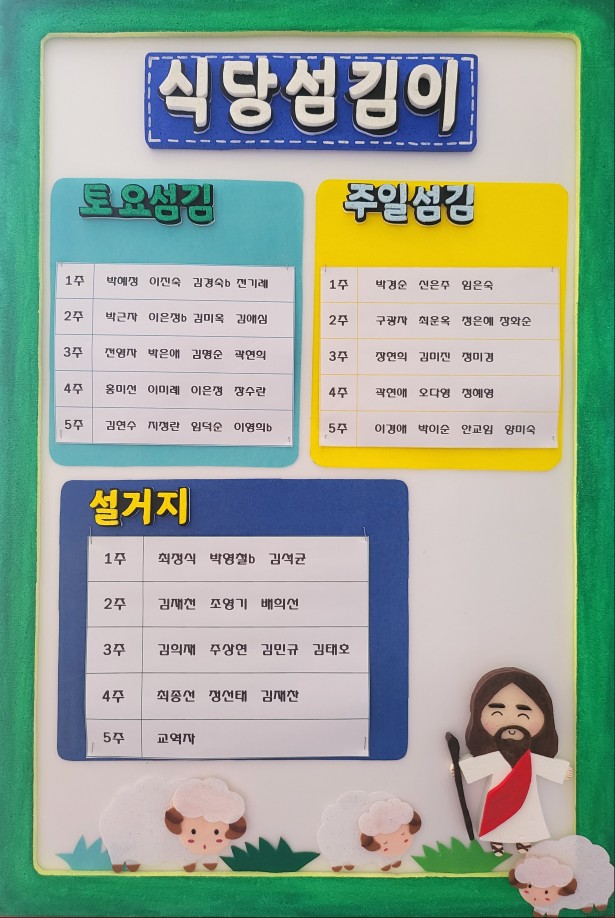 식당섬김이
토요섬김
1주 박혜정 이진숙 김경숙b 전기례
2주 박근자 이은정b 김미옥 김애심
3주 전영자 박은애 김명순 곽현의
4주 홍미선 이미례 이은정 장수란
5주 김현수 지정란 임덕순 이영희b
주일섬김
1주 박경순 신은주 임은숙
2주 구광자 최운옥 정은혜 장화순
3주 장현희 김미진 정미경
4주 곽현애 오다영 정혜영
5주 이경애 박이순 안교임 양미숙
설거지
1주 최정식 박영철b 김석균
2주 김재천 조영기 배희선
3주 김의재 주상현 김민규 김태호
4주 최종선 정선태 김재찬
5주 교역자